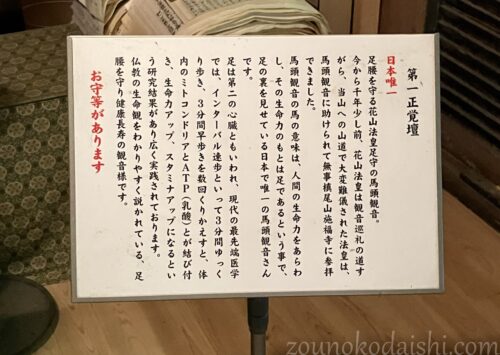 第一正覚壇
日本唯一
足腰を守る花山法皇足守の馬頭観音。
今から千年少し前、花山法皇は観音巡礼の道す
がら、当山への山道で大変難儀された法皇は、
馬頭観音に助けられて無事槙尾山施福寺に参拝
できました。
馬頭観音の馬の意味は、人間の生命力をあらわ
し、その生命力のもとは足であるという事で、
足の裏を見せている日本で唯一の馬頭観音さん
です。
足は第二の心臓ともいわれ、現代の最先端医学
では、インターバル速歩といって3分間ゆっく
り歩き、3分間早歩きを数回くりかえすと、体
内のミトコンドリアとATP(乳酸)とが結び付
き、生命力アップ、スタミナアップになるとい
う研究結果があり広く実践されております。
仏教の生命観をわかりやすく説かれている、足
腰を守り健康長寿の観音様です。
お守等があります
zounokodaishi.com